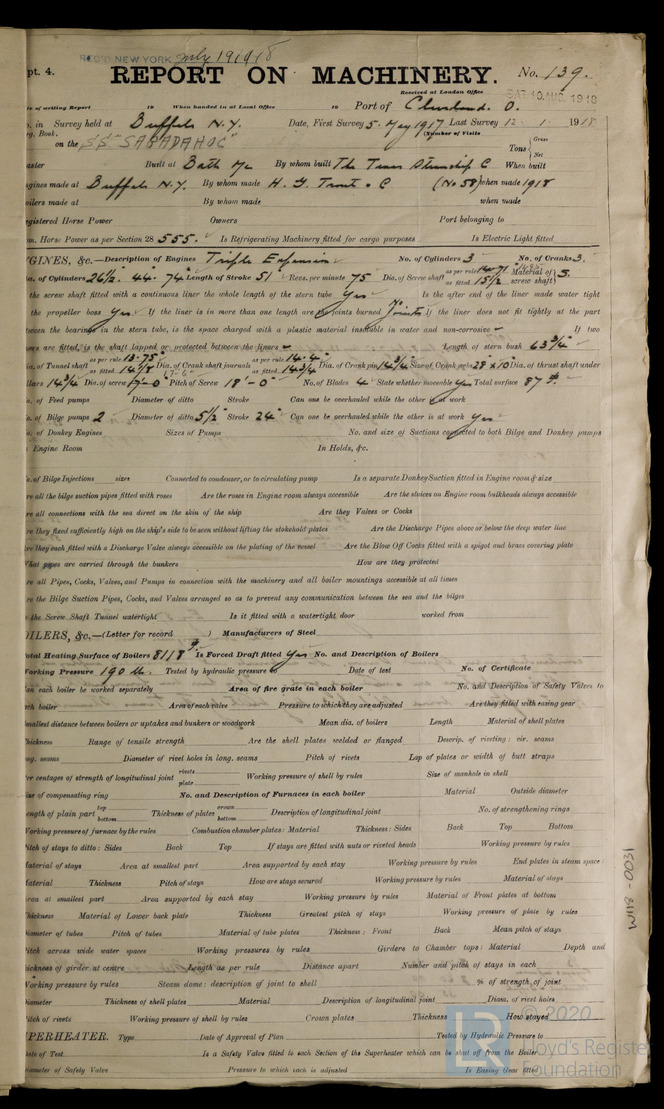 REC'D NEW YORK July 19 1918
pt. 4.
REPORT ON MACHINERY.
No. 139.
Received at London Office
SAT. 10 AUG. 1918
of writing Report 19 When handed in at Local Office 19 Port of Cleveland. O.
in Survey held at Buffalo N.Y. Date, First Survey 5 - May 1917 Last Survey 12 - 1 - 1918
g. Book. (Number of Visits
on the S.S. "SAGADAHOC" Tons { Gross Net
aster Built at Bath Me By whom built The Texas Steamship C When built
gines made at Buffalo N.Y. By whom made H. G. Trout & C (No 58) when made 1918
oilers made at By whom made when made
gistered Horse Power Owners Port belonging to
m. Horse Power as per Section 28 555. Is Refrigerating Machinery fitted for cargo purposes Is Electric Light fitted
GINES, &c.—Description of Engines Triple Expansion No. of Cylinders 3 No. of Cranks 3.
a. of Cylinders 26½. 44. 74" Length of Stroke 51 Revs. per minute 75 Dia. of Screw shaft as per rule 14.71 as fitted 15½ Material of screw shaft } S.
the screw shaft fitted with a continuous liner the whole length of the stern tube Yes Is the after end of the liner made water tight
the propeller boss Yes If the liner is in more than one length are the joints burned No Joints If the liner does not fit tightly at the part
ween the bearings in the stern tube, is the space charged with a plastic material insoluble in water and non-corrosive – If two
ers are fitted, is the shaft lapped or protected between the liners – Length of stern bush 63¾"
a. of Tunnel shaft as per rule 13.75" as fitted 14⅛ Dia. of Crank shaft journals as per rule 14.4" as fitted 14¾ Dia. of Crank pin 14¾ Size of Crank webs 29" x 10" Dia. of thrust shaft under
llars 14¾" Dia. of screw 17-0" Pitch of Screw 18'-0" No. of Blades 4 State whether moveable Yes Total surface 87
o. of Feed pumps Diameter of ditto Stroke Can one be overhauled while the other is at work
o. of Bilge pumps 2 Diameter of ditto 5½ Stroke 24" Can one be overhauled while the other is at work Yes
o. of Donkey Engines Sizes of Pumps No. and size of Suctions connected to both Bilge and Donkey pumps
Engine Room In Holds, &c.
o. of Bilge Injections sizes Connected to condenser, or to circulating pump Is a separate Donkey Suction fitted in Engine room & size
re all the bilge suction pipes fitted with roses Are the roses in Engine room always accessible Are the sluices on Engine room bulkheads always accessible
re all connections with the sea direct on the skin of the ship Are they Valves or Cocks
re they fixed sufficiently high on the ship's side to be seen without lifting the stokehold plates Are the Discharge Pipes above or below the deep water line
re they each fitted with a Discharge Valve always accessible on the plating of the vessel Are the Blow Off Cocks fitted with a spigot and brass covering plate
What pipes are carried through the bunkers How are they protected
re all Pipes, Cocks, Valves, and Pumps in connection with the machinery and all boiler mountings accessible at all times
re the Bilge Suction Pipes, Cocks, and Valves arranged so as to prevent any communication between the sea and the bilges
the Screw Shaft Tunnel watertight Is it fitted with a watertight door worked from
OILERS, &c.—(Letter for record ) Manufacturers of Steel
otal Heating Surface of Boilers 8118 Is Forced Draft fitted Yes No. and Description of Boilers
orking Pressure 190 lb. Tested by hydraulic pressure to Date of test No. of Certificate
an each boiler be worked separately Area of fire grate in each boiler No. and Description of Safety Valves to
ch boiler Area of each valve Pressure to which they are adjusted Are they fitted with easing gear
mallest distance between boilers or uptakes and bunkers or woodwork Mean dia. of boilers Length Material of shell plates
hickness Range of tensile strength Are the shell plates welded or flanged Descrip. of riveting: cir. seams
ng. seams Diameter of rivet holes in long. seams Pitch of rivets Lap of plates or width of butt straps
er centages of strength of longitudinal joint rivets plate Working pressure of shell by rules Size of manhole in shell
ize of compensating ring No. and Description of Furnaces in each boiler Material Outside diameter
ength of plain part top bottom Thickness of plates crown bottom Description of longitudinal joint No. of strengthening rings
Working pressure of furnace by the rules Combustion chamber plates: Material Thickness: Sides Back Top Bottom
Pitch of stays to ditto: Sides Back Top If stays are fitted with nuts or riveted heads Working pressure by rules
Material of stays Area at smallest part Area supported by each stay Working pressure by rules End plates in steam space:
aterial Thickness Pitch of stays How are stays secured Working pressure by rules Material of stays
rea at smallest part Area supported by each stay Working pressure by rules Material of Front plates at bottom
hickness Material of Lower back plate Thickness Greatest pitch of stays Working pressure of plate by rules
iameter of tubes Pitch of tubes Material of tube plates Thickness: Front Back Mean pitch of stays
itch across wide water spaces Working pressures by rules Girders to Chamber tops: Material Depth and
hickness of girder at centre Length as per rule Distance apart Number and pitch of stays in each
orking pressure by rules Steam dome: description of joint to shell % of strength of joint
iameter Thickness of shell plates Material Description of longitudinal joint Diam. of rivet holes
itch of rivets Working pressure of shell by rules Crown plates Thickness How stayed
UPERHEATER. Type Date of Approval of Plan Tested by Hydraulic Pressure to
ate of Test Is a Safety Valve fitted to each Section of the Superheater which can be shut off from the Boiler
iameter of Safety Valve Pressure to which each is adjusted Is Easing Gear fitted
W118-0031
© 2020
Lloyd's Register
Foundation